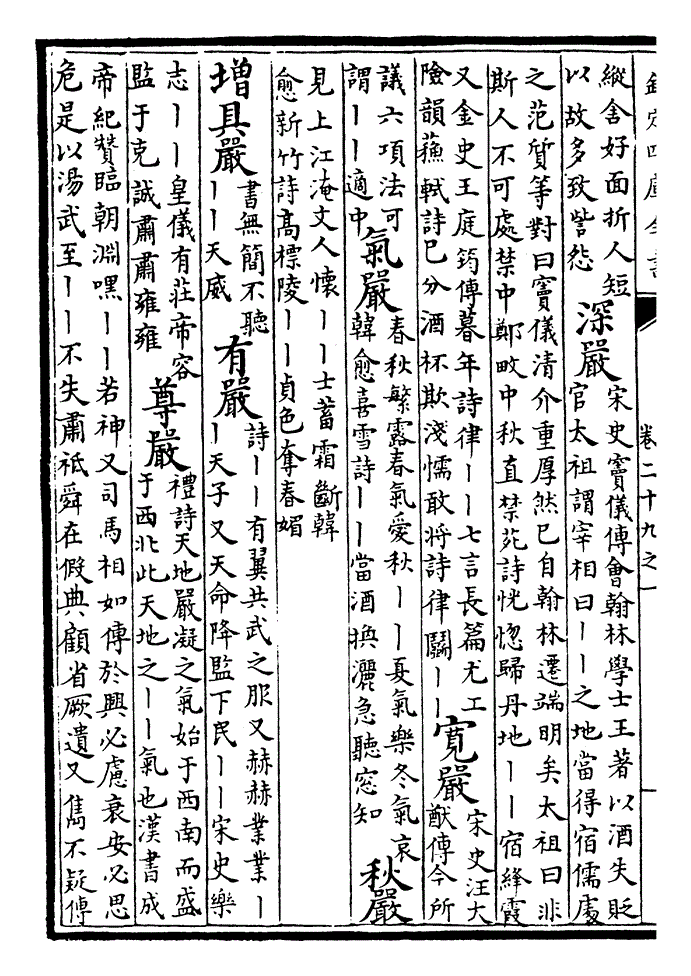 欽定四庫全書
卷二十九之一
縱舍好面折人短
以故多致訾怨
深嚴
宋史竇儀傳會翰林學士王著以酒失貶
官太祖謂宰相曰丨丨之地當得宿儒處
之范質等對曰竇儀清介重厚然已自翰林遷端明矣太祖曰非
斯人不可處禁中鄭畋中秋直禁苑詩恍惚歸丹地丨丨宿絳霞
又金史王庭筠傳暮年詩律丨丨七言長篇尤工
險韻蘇軾詩已分酒杯欺淺懦敢將詩律鬭丨丨
寛嚴
宋史汪大
猷傳今所
議六項法可
謂丨丨適中
氣嚴
春秋繁露春氣愛秋丨丨夏氣樂冬氣哀
韓愈喜雪詩丨丨當酒換灑急聽窓知
秋嚴
見上江淹丈人懷丨丨士蓄霜斷韓
愈新竹詩高標陵丨丨貞色奪春媚
增具嚴
書無簡不聽
丨丨天威
有嚴
詩丨丨有翼共武之服又赫赫業業丨
丨天子又天命降監下民丨丨宋史樂
志丨丨皇儀有莊帝容
監于克誠肅肅雍雍
尊嚴
禮詩天地嚴凝之氣始于西南而盛
于西北此天地之丨丨氣也漢書成
帝紀贊臨朝淵嘿丨丨若神又司馬相如傳於興必慮衰安必思
危是以湯武至丨丨不失肅祗舜在假典顧省厥遺又雋不疑傳